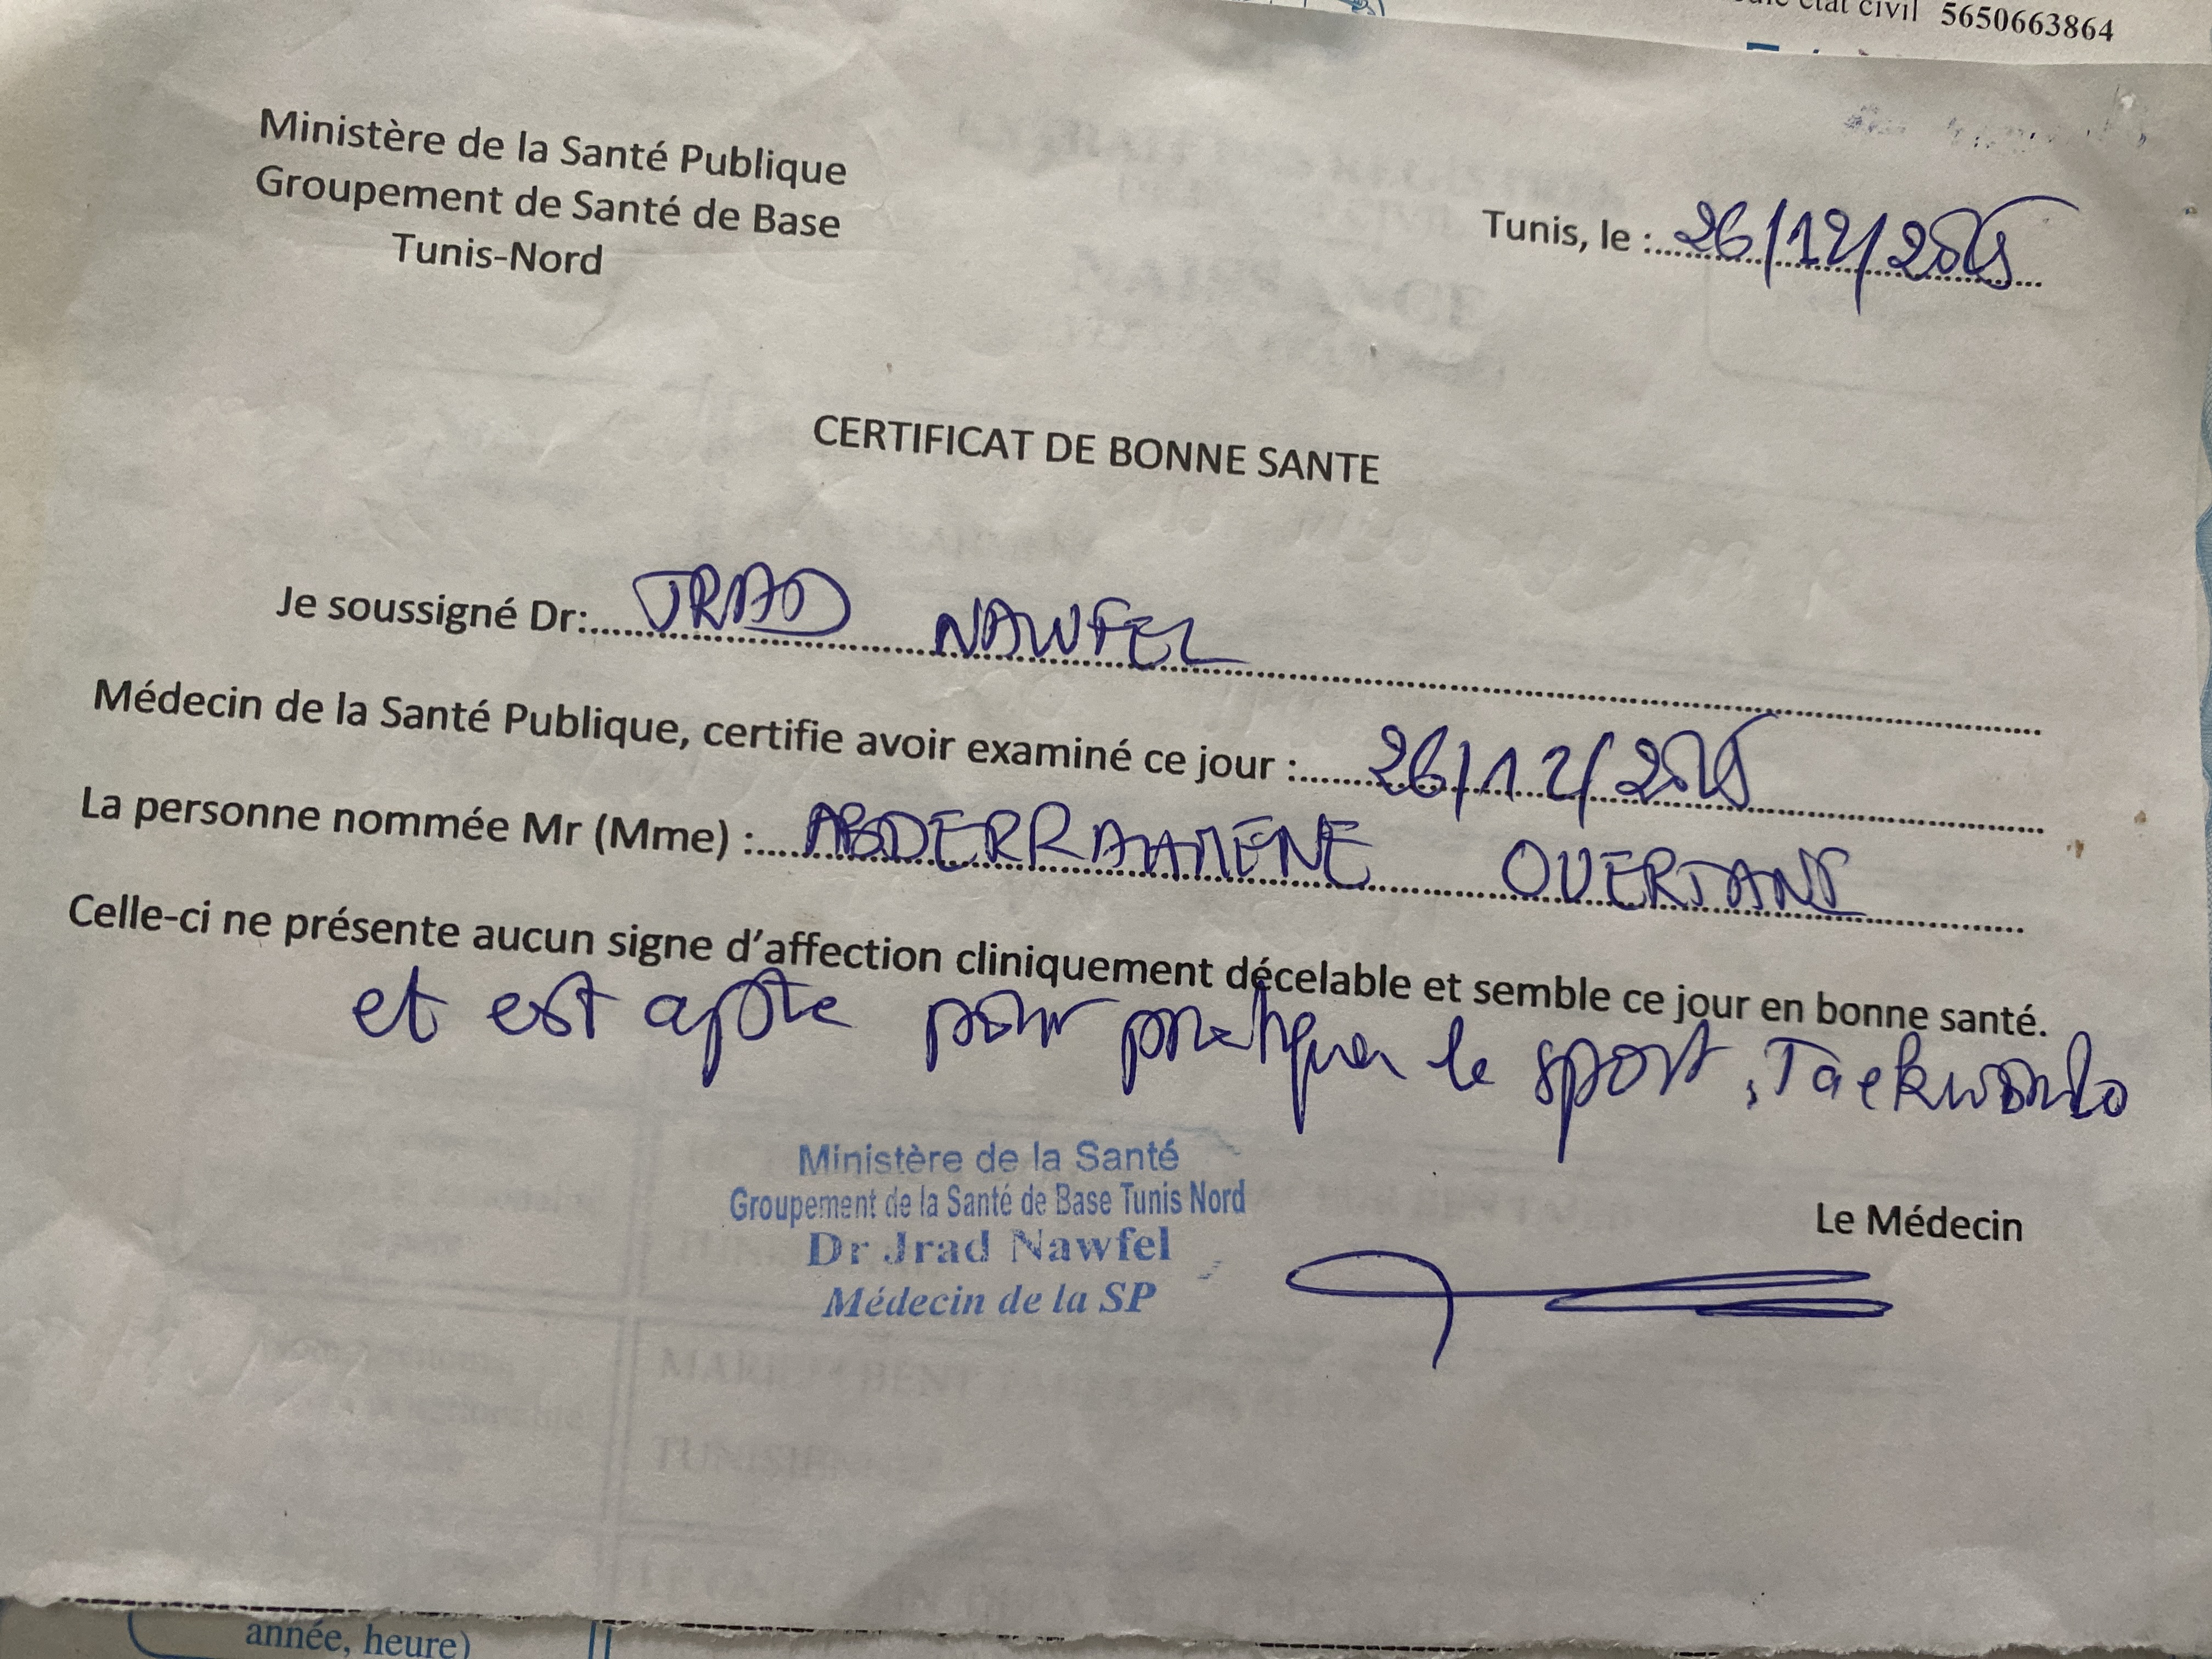 état civil 5650663864
Ministère de la Santé Publique
Groupement de Santé de Base
Tunis-Nord
Tunis, le : 26/12/2025
CERTIFICAT DE BONNE SANTE
Je soussigné Dr: JRAD NAWFEL
Médecin de la Santé Publique, certifie avoir examiné ce jour : 26/12/2025
La personne nommée Mr (Mme) : ABDERRAHMENE OUERTANI
Celle-ci ne présente aucun signe d'affection cliniquement décelable et semble ce jour en bonne santé.
et est apte pour pratiquer le sport, Taekwondo
Ministère de la Santé
Groupement de la Santé de Base Tunis Nord
Dr Jrad Nawfel
Médecin de la SP
Le Médecin
année, heure)